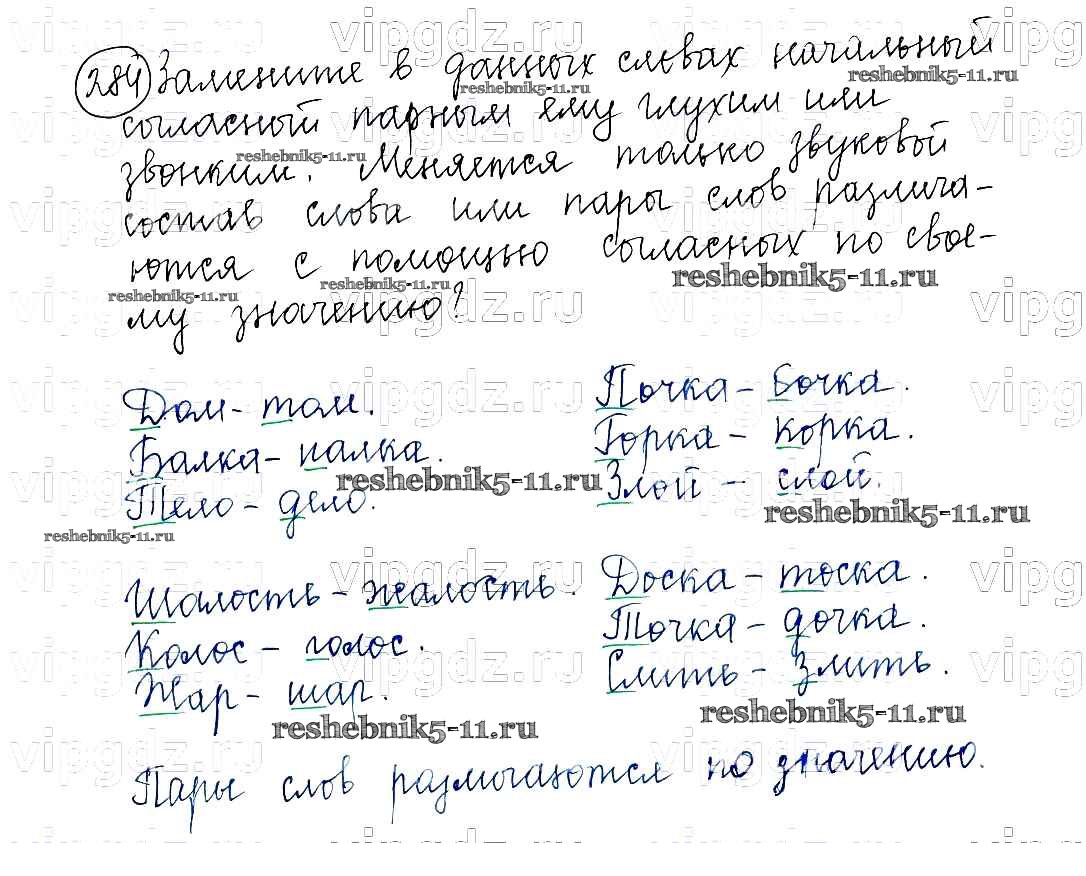 284 Замените в данных словах начальный
согласный парным ему глухим или
звонким. Меняется только звуковой
состав слова или пары слов различа-
ются с помощью согласных по свое-
му значению?
Дом - том.
Балка - палка.
Тело - дело.
Почка - бочка.
Горка - корка.
Злой - слой.
Шалость - жалость.
Колос - голос.
Жар - шар.
Доска - тоска.
Точка - дочка.
Слить - злить.
Пары слов различаются по значению.
vipgdz.ru
reshebnik5-11.ru